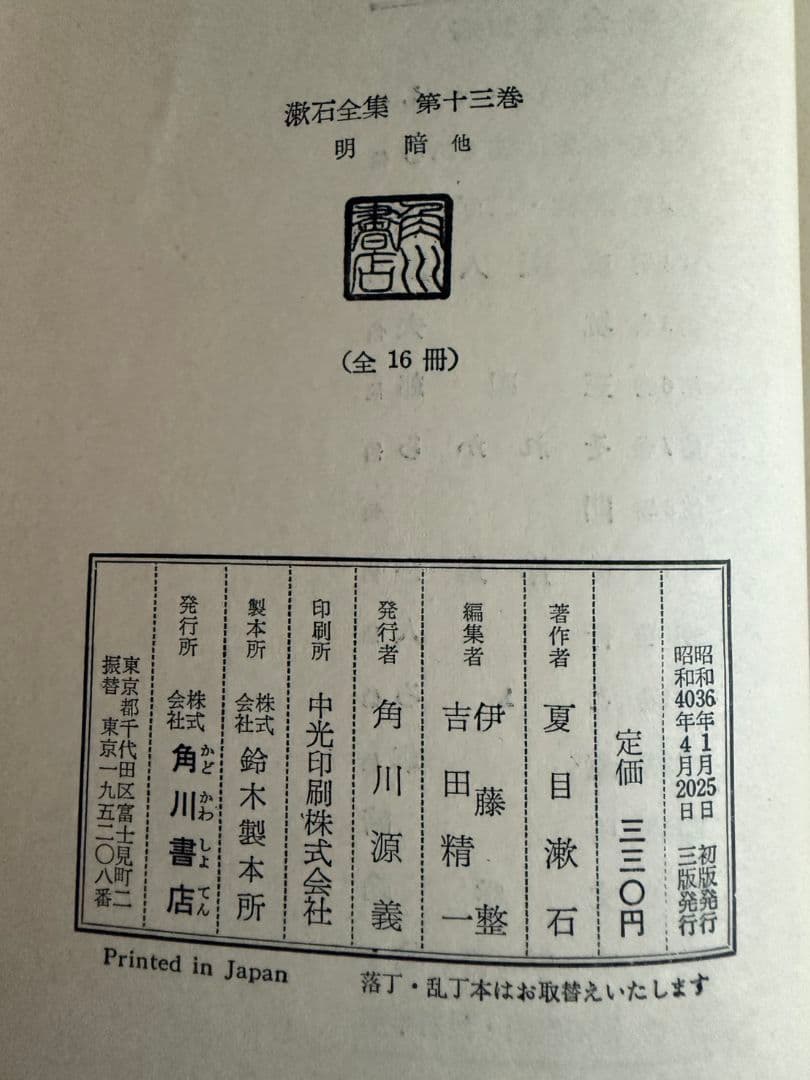 漱石全集 第十三巻
明暗 他
角川書店
(全16冊)
昭和36年1月25日 初版発行
昭和40年4月20日 三版発行
定価 三三〇円
著作者 夏目漱石
編集者 伊藤整
吉田精一
発行者 角川源義
印刷所 中光印刷株式会社
製本所 株式会社 鈴木製本所
発行所 株式会社 角川書店
かど かわ しよ てん
東京都千代田区富士見町二
振替 東京一九五二〇八番
Printed in Japan
落丁・乱丁本はお取替えいたします